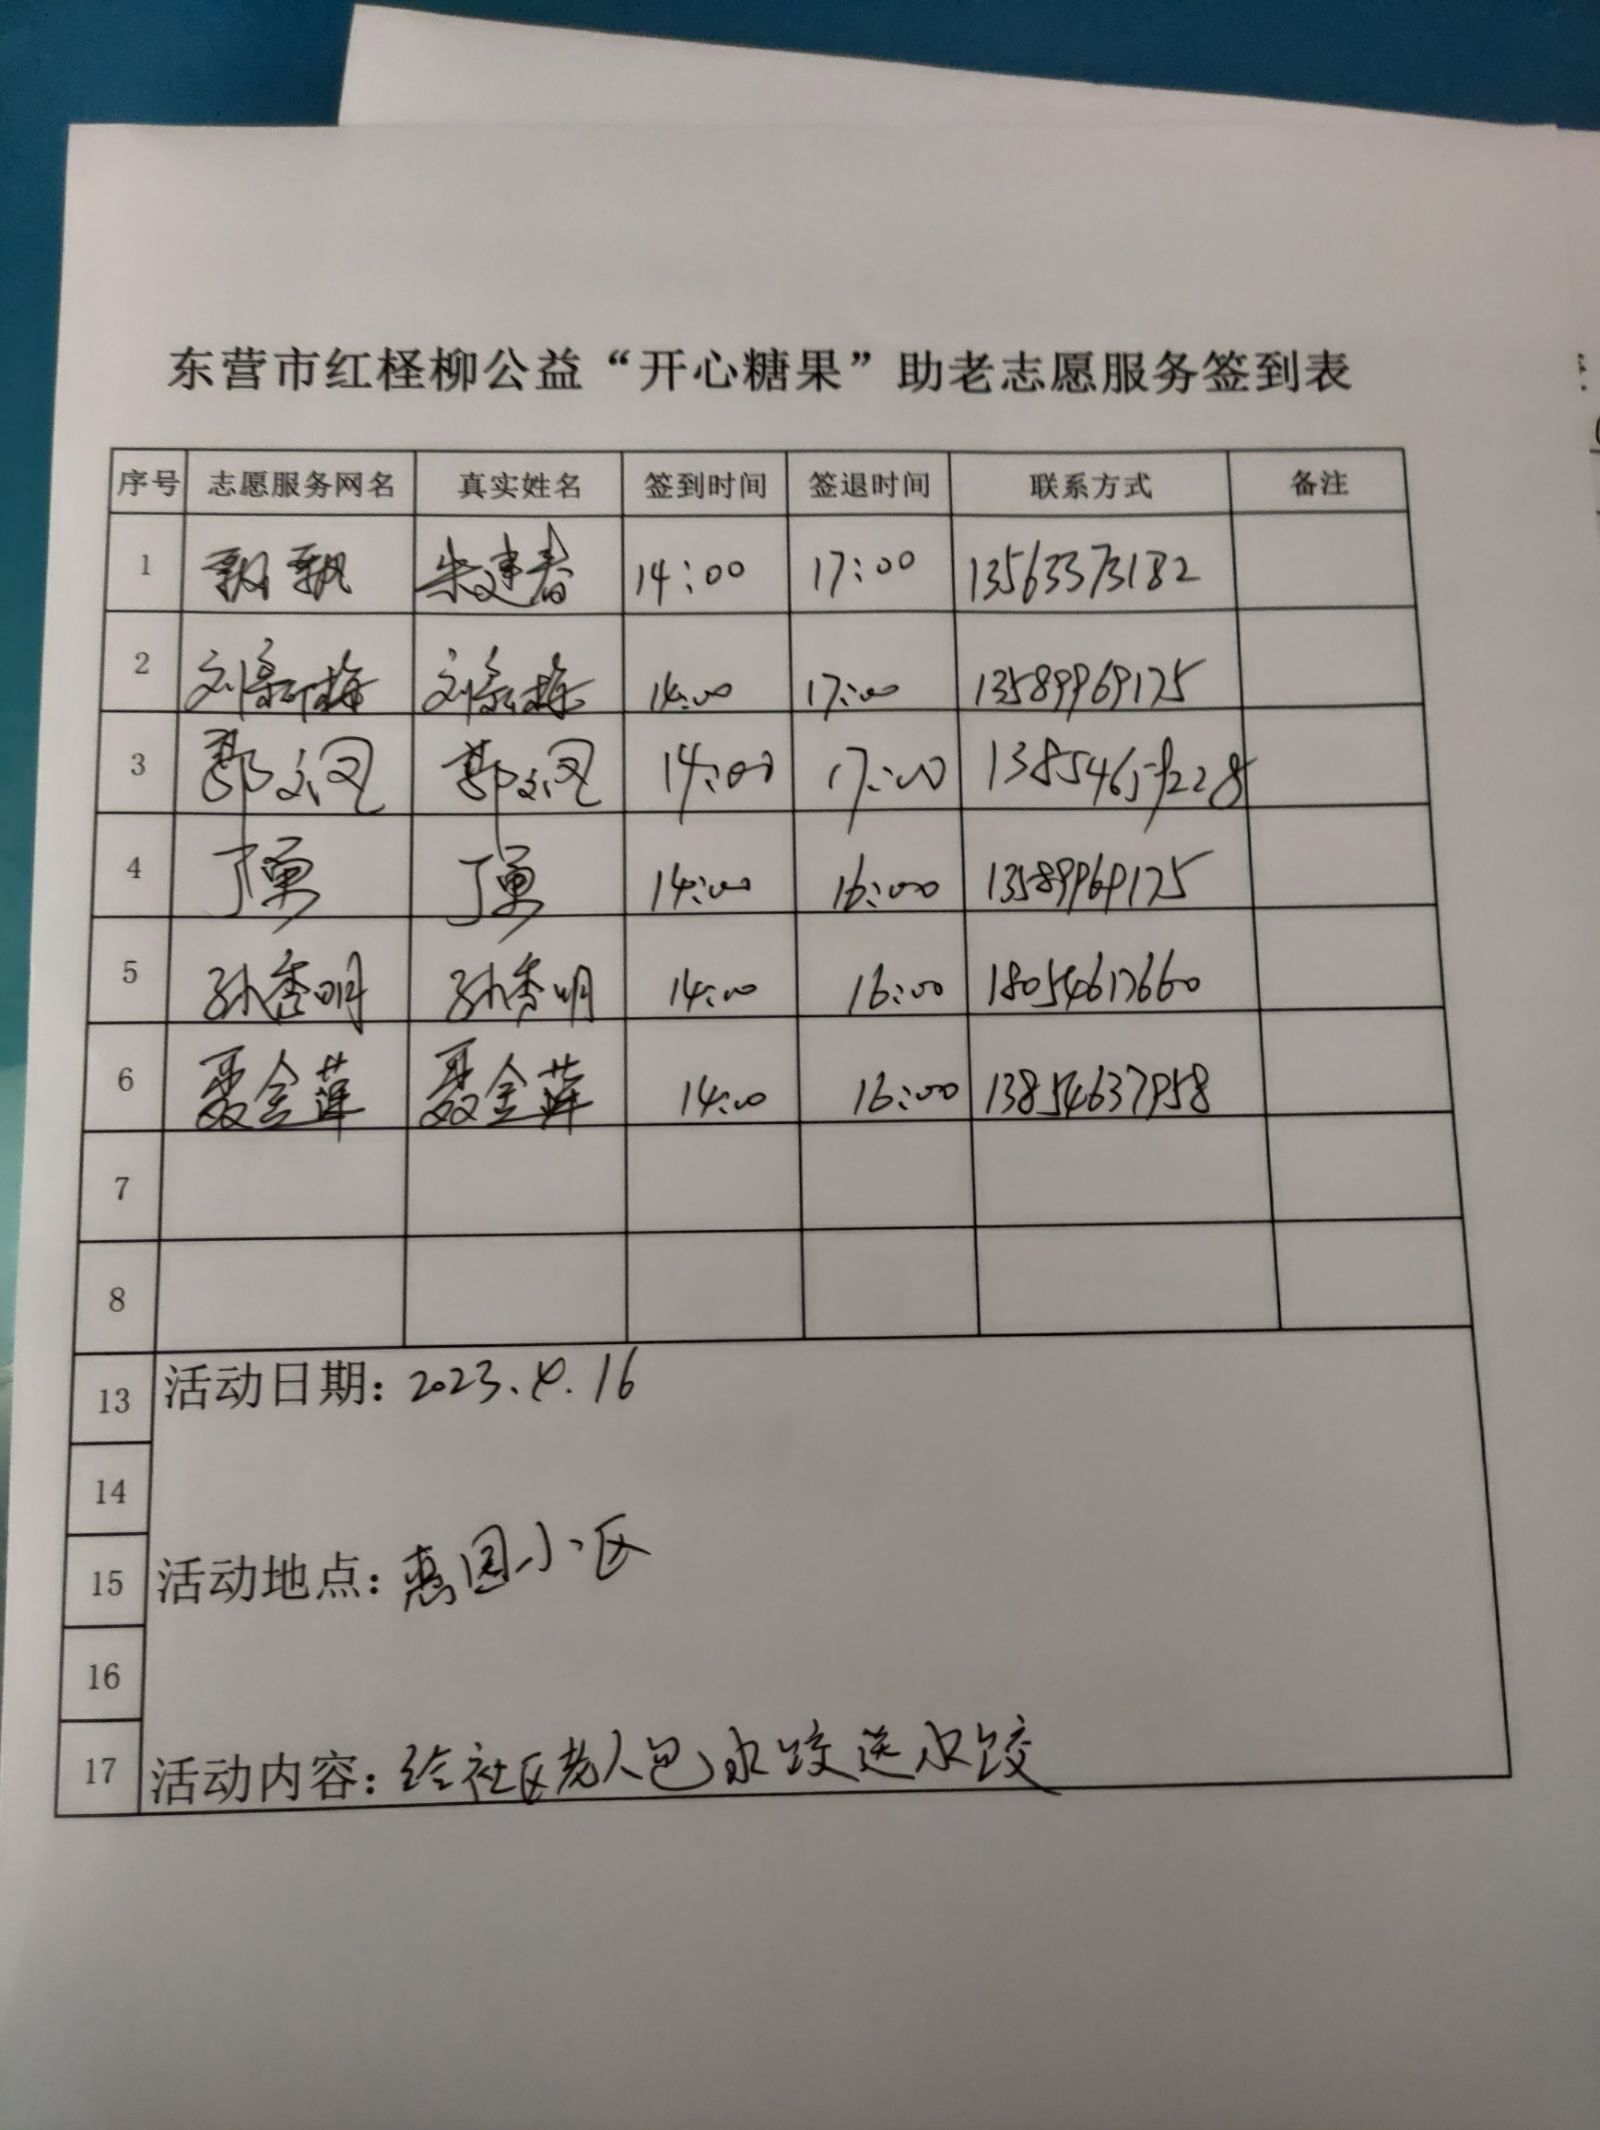 东营市红柽柳公益“开心糖果”助老志愿服务签到表
序号 志愿服务网名 真实姓名 签到时间 签退时间 联系方式 备注
1 飘飘 朱建春 14:00 17:00 13563373182
2 刘新梅 刘新梅 14:00 17:00 13589969175
3 14:00 17:00
4 丁勇 丁勇 14:00 16:00 13589969175
5 孙秀明 孙秀明 14:00 16:00 18054617660
6 聂金莲 聂金莲 14:00 16:00 13854637958
7
8
13 活动日期：2023.4.16
14
15 活动地点：惠园小区
16
17 活动内容：给社区老人包水饺送水饺